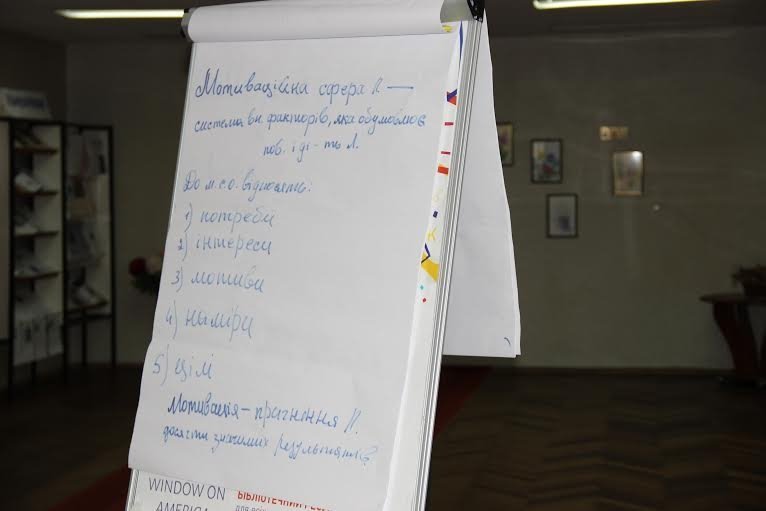 Мотиваційна сфера Л. —
система вн. факторів, яка обумовлює
пов. і ді-ть Л.
До м.с.о. відносять:
1) потреби
2) інтереси
3) мотиви
4) наміри
5) цілі
Мотивація - прагнення Л.
досягти значимих результатів
WINDOW ON
AMERICA